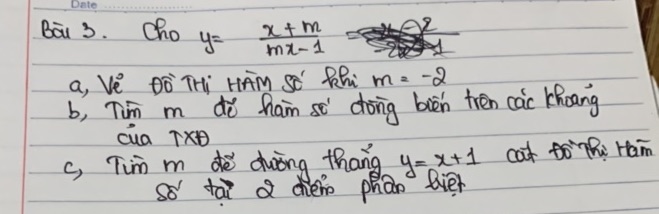 Date
Bài 3. Cho y = \frac{x+m}{mx-1}
a, Vẽ ĐỒ THỊ HÀM SỐ khi m = -2
b, Tìm m để hàm số đồng biến trên các khoảng
của TXĐ
c, Tìm m để đường thẳng y = x+1 cắt Đồ Thị Hàm
số tại 2 điểm phân biệt